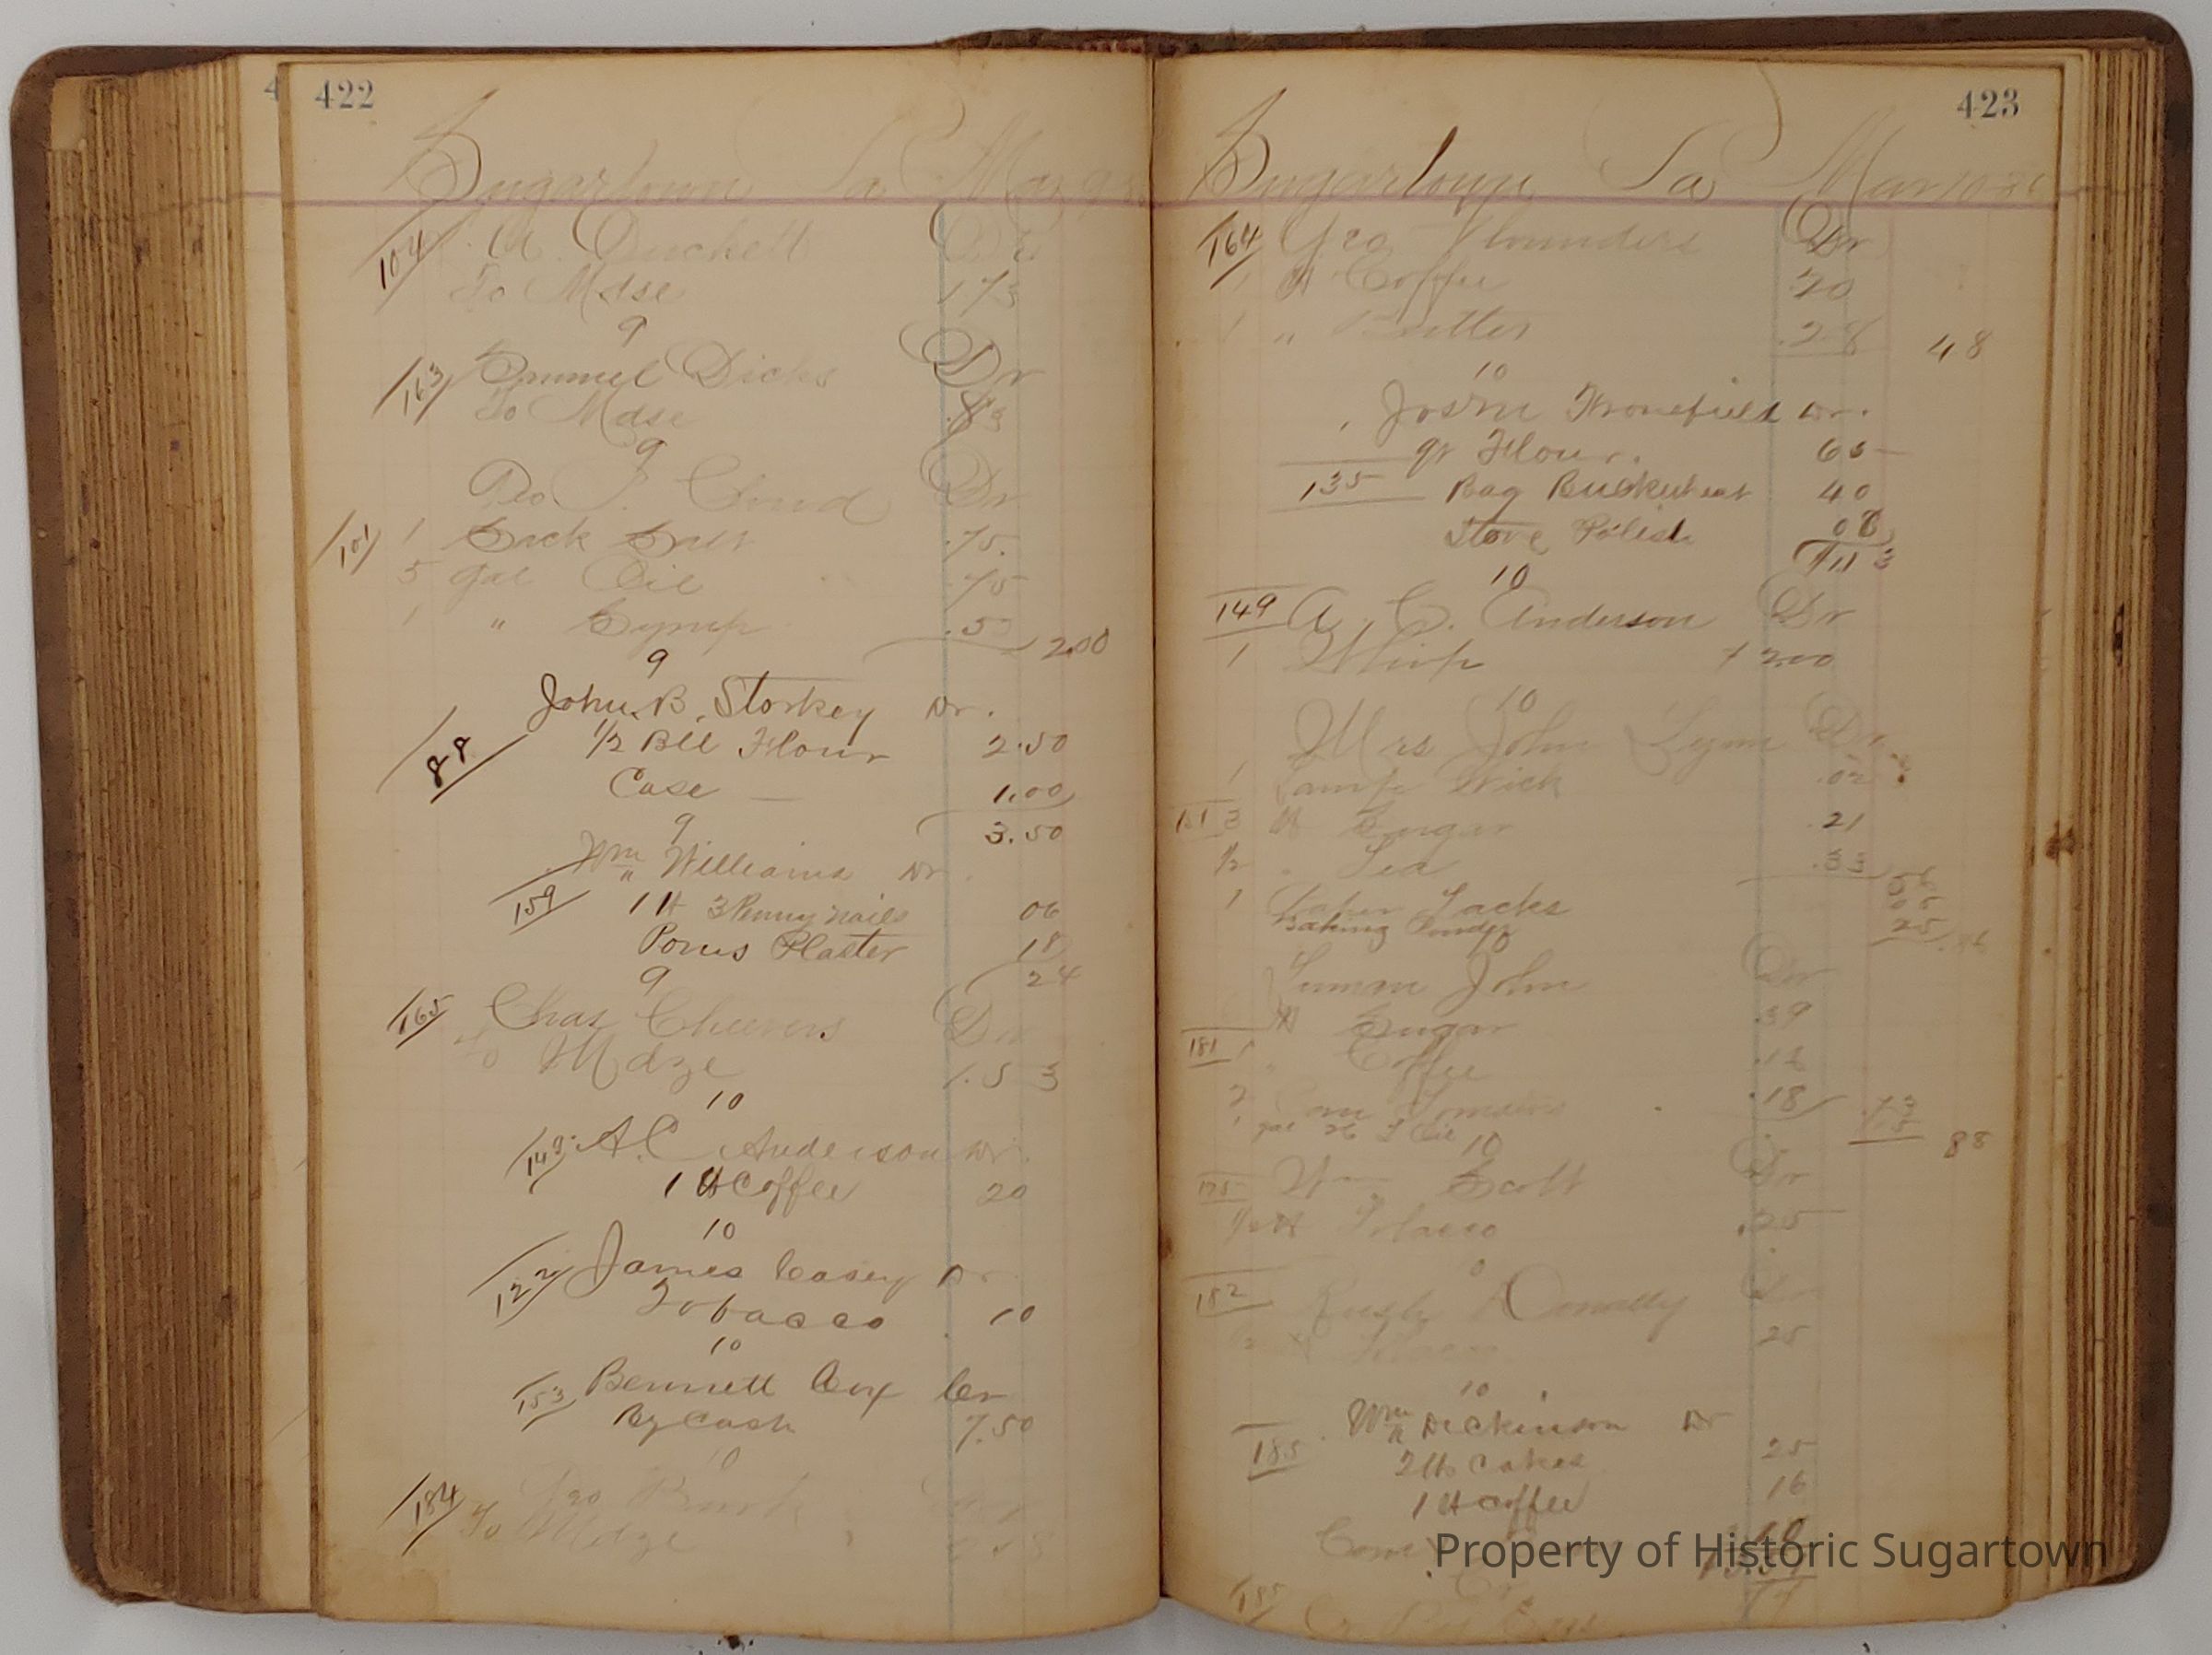 422
Sugartown Pa Mar 9
104 Duckett Dr
To Mdse 1 73
9
163 Emmel Dicks Dr
To Mdse
9
Geo F. Cloud Dr
101 1 Sack Salt .75
5 gal Oil 75
1 " Syrup .50 2.00
9
John B. Storkey Dr.
88 1/2 Bll Flour 2.50
Case — 1.00
9 3.50
Wm Williams Dr
159 1 lb 3 Penny nails 06
Porus Plaster 18
9 24
165 Chas Cheevers Dr
To Mdze 1.53
10
149 A.C Anderson Dr.
1 lb Coffee 20
10
122 James Casey Dr
Tobacco 10
10
153 Bennett Coxf Cr
By Cash 7.50
10
184 Geo
To Mdze
423
Sugartown Pa Mar 10
164 Geo Flounders Dr
1 lb Coffee 20
1 " Butter .28 48
10
Fronefield Dr.
qr Flour. 65
135 Bag Buckwheat 40
Stove Polish 08
1.13
10
149 A. C. Anderson Dr
1 Whip 2.00
10
Mrs John Lynn Dr
1 Lamp Wick .02
3 lb Sugar .21
1/2 Tea .33
1 Paper Tacks
Baking Powder 25
Luman John Dr
lb Sugar .39
181 1 Coffee
2 Cans Tomatoes .18
1 gal Oil 88
10
175 Wm Scott Dr
1/2 lb Tobacco .25
182 Dr
25
10
Wm Dickinson Dr
185 2 lb Cakes 25
1 lb Coffee 16
Property of Historic Sugartown
185